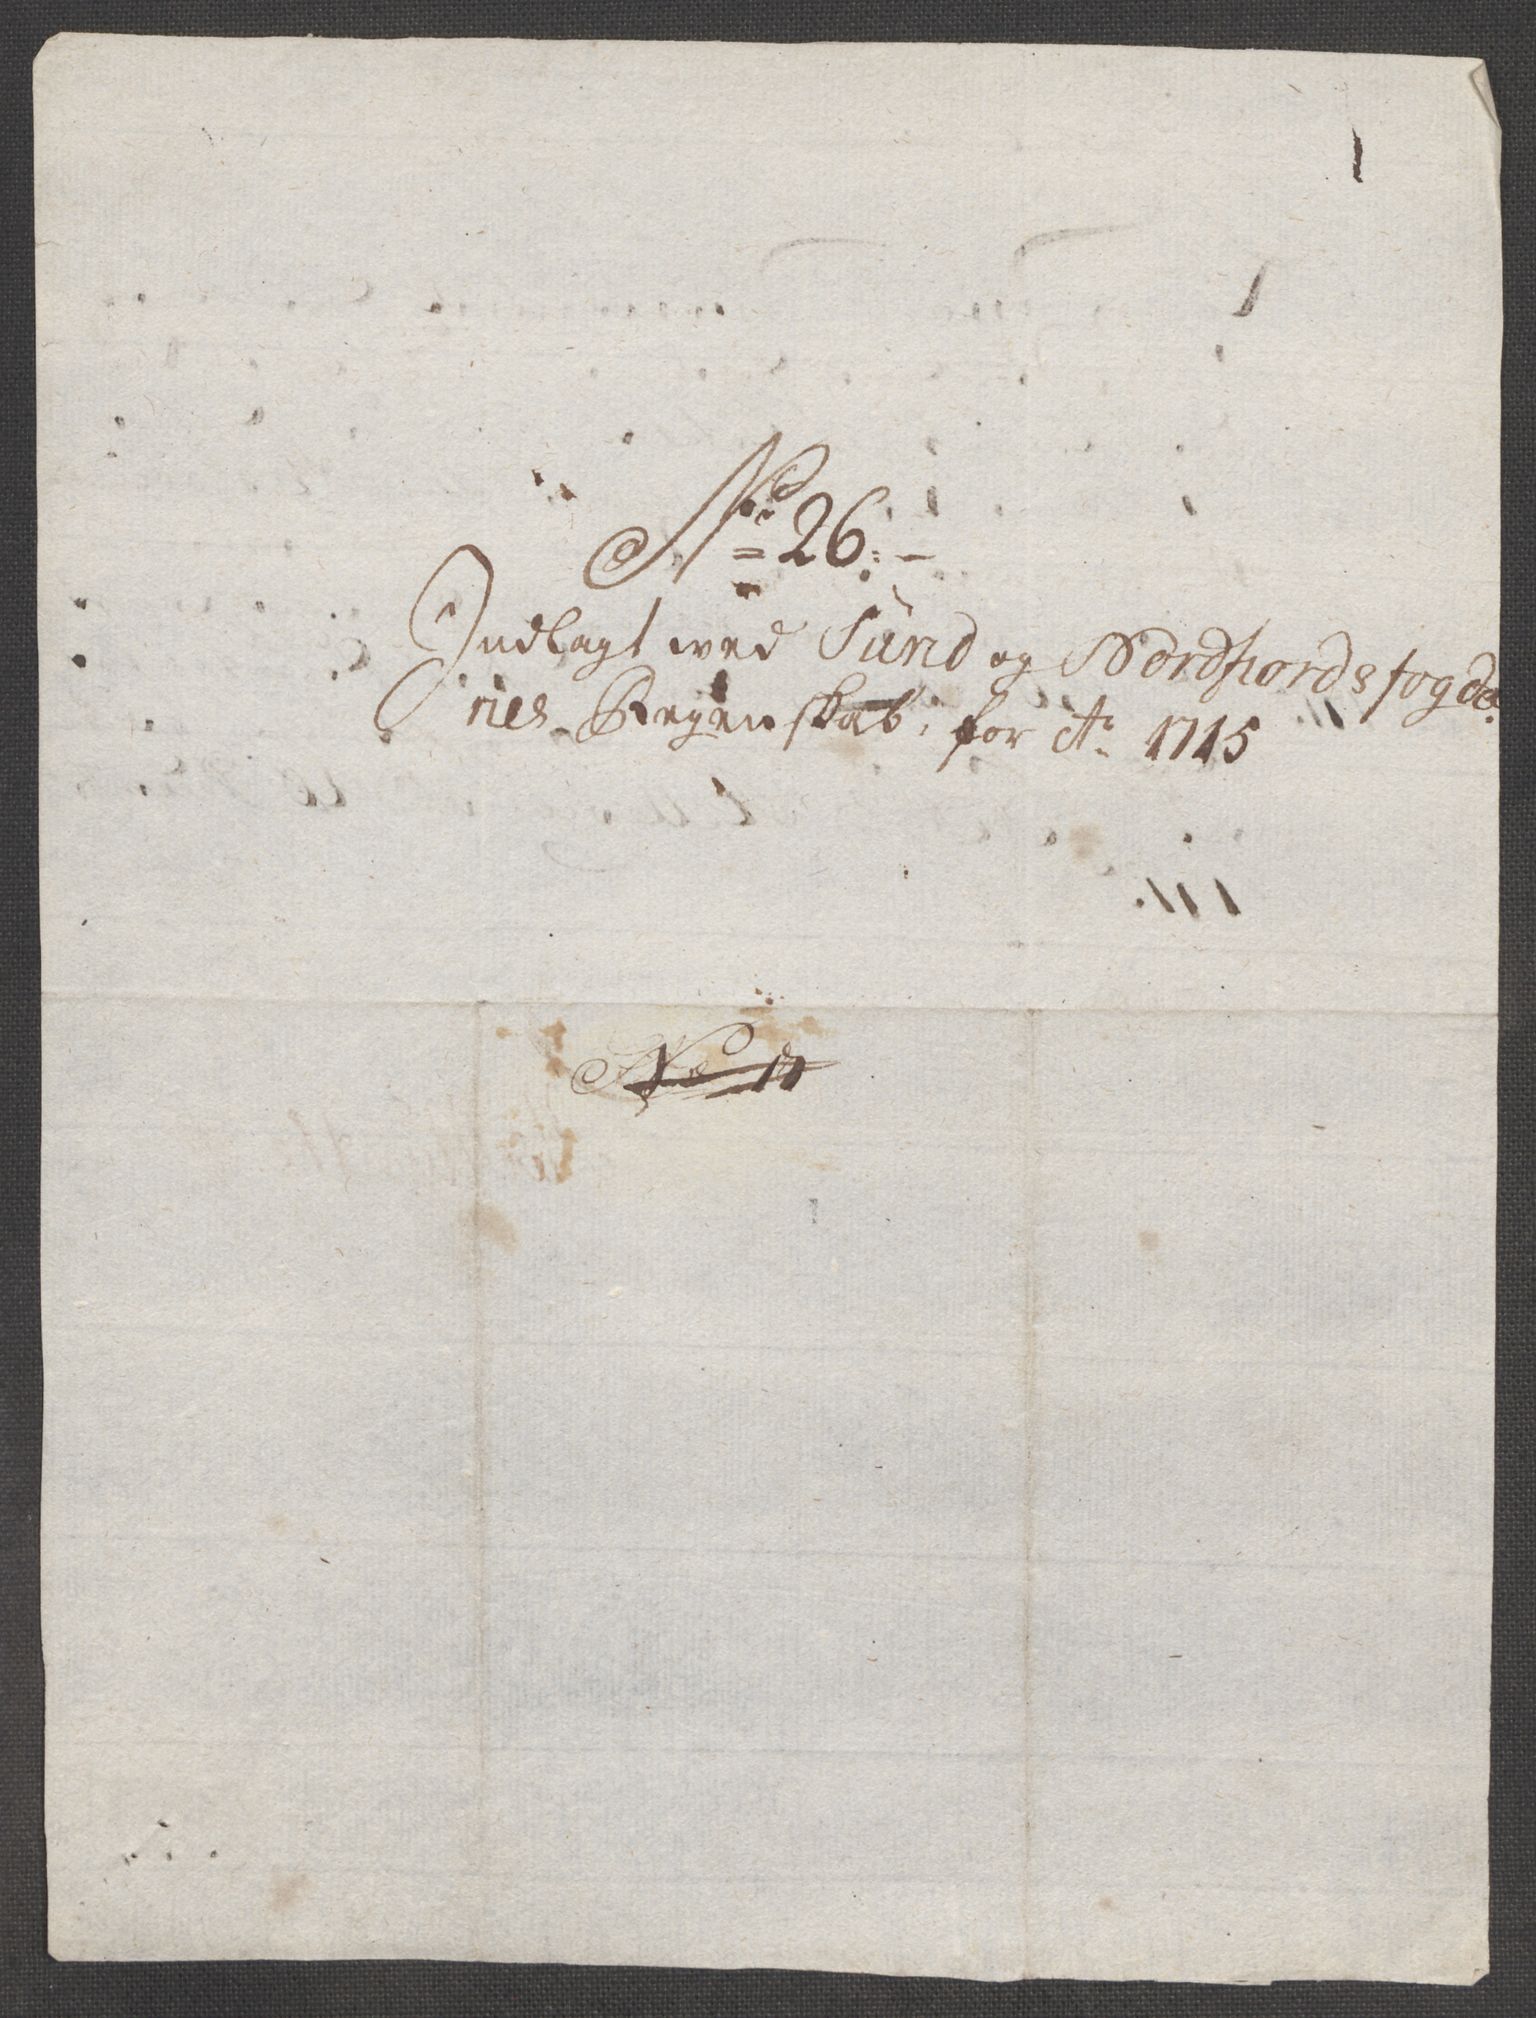 No 26:-
Indlagt wed Sünd og Nordfiords fogde
ries Regenskab, for Ao 1715
No 10